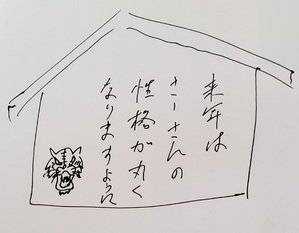 来年は
さーさんの
性格が丸く
なりますように